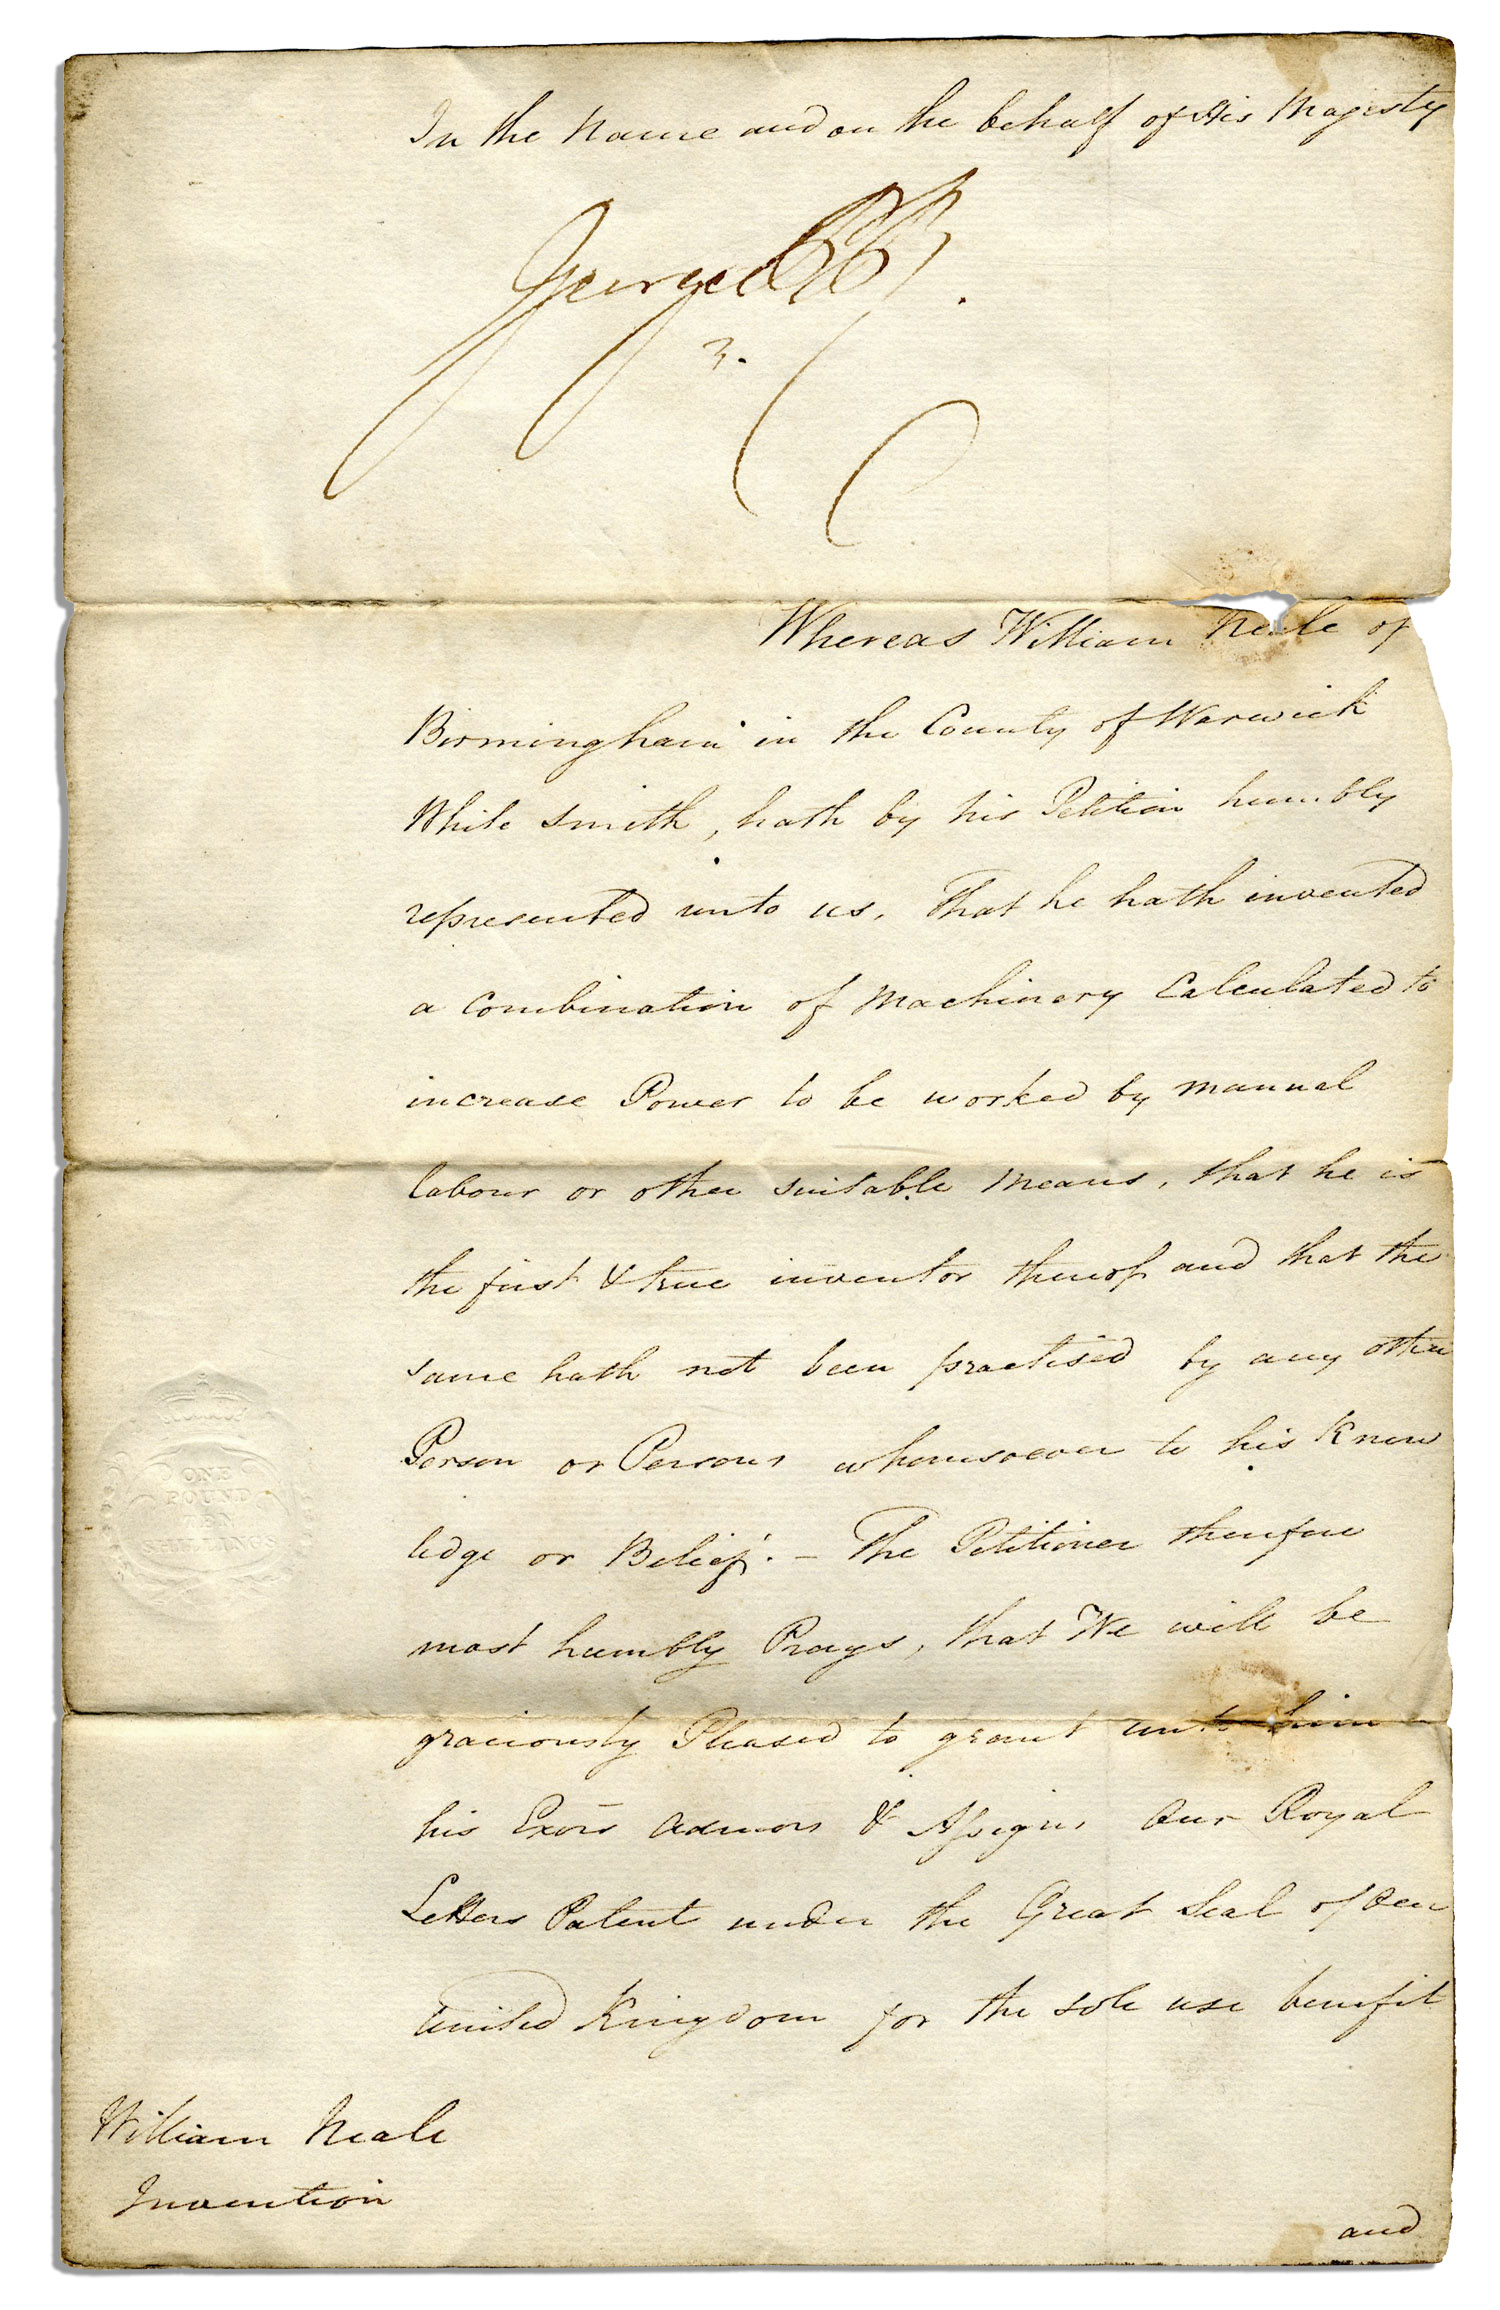 In the Name and on the behalf of His Majesty
George P R.
Whereas William Neale of
Birmingham in the County of Warwick
White Smith, hath by his Petition humbly
represented unto us, That he hath invented
a Combination of Machinery Calculated to
increase Power to be worked by manual
labour or other suitable Means, that he is
the first & true inventor thereof and that the
same hath not been practised by any other
Person or Persons whomsoever to his Know
ledge or Belief. - The Petitioner therefore
most humbly Prays, that We will be
graciously Pleased to grant unto him
his Exors Admors & Assigns Our Royal
Letters Patent under the Great Seal of Our
United Kingdom for the sole use benefit
and
ONE
POUND
EN
SHILLINGS
William Neale
Invention